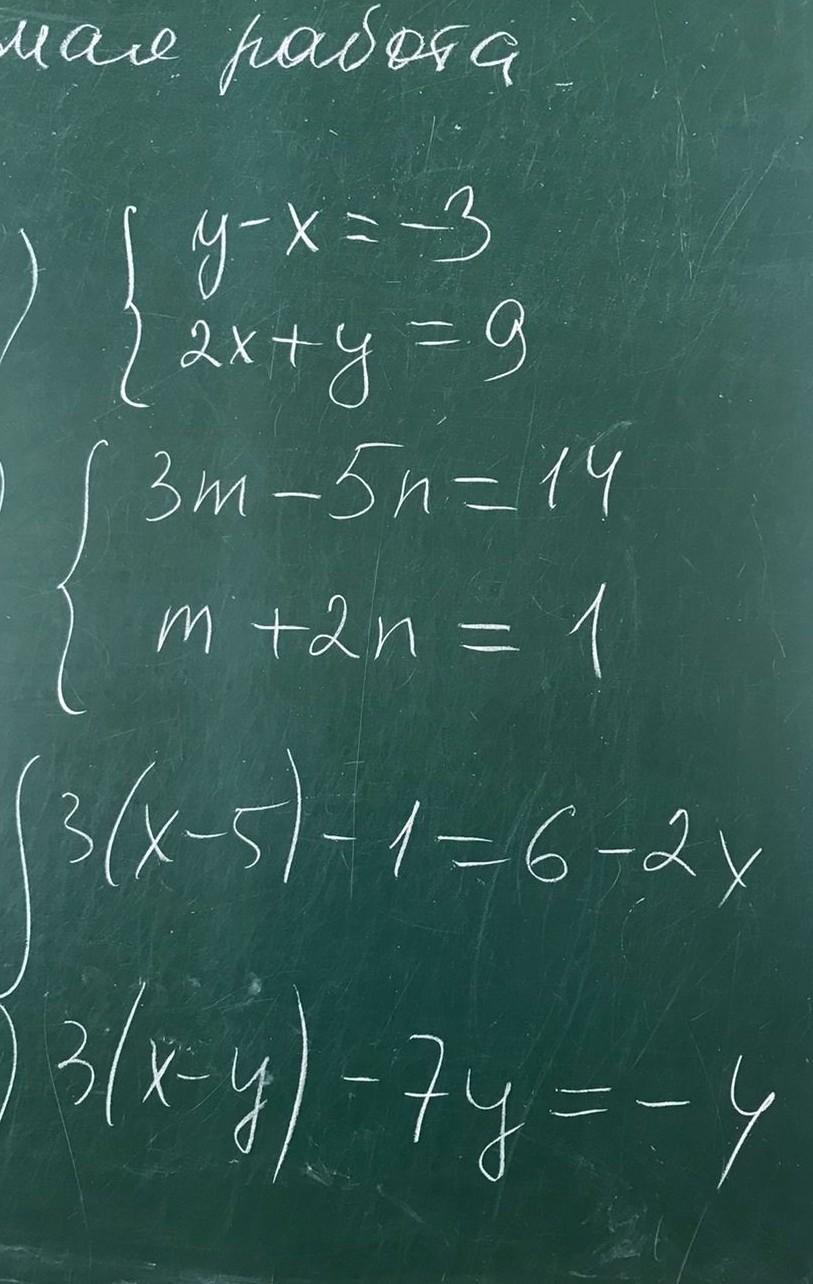 мая работа
) { y-x=-3
2x+y=9
) { 3m-5n=14
m+2n=1
{ 3(x-5)-1=6-2x
3(x-y)-7y=-4